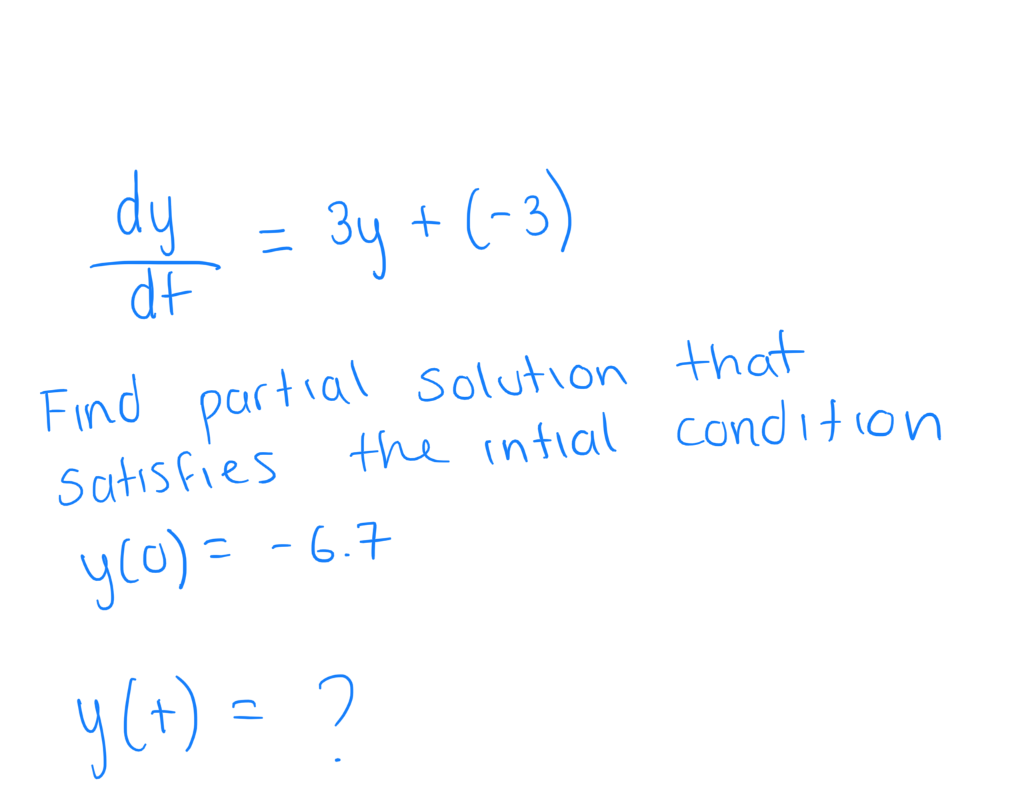 dy/dt = 3y + (-3)
Find partial solution that
satisfies the intial condition
y(0) = -6.7
y(t) = ?